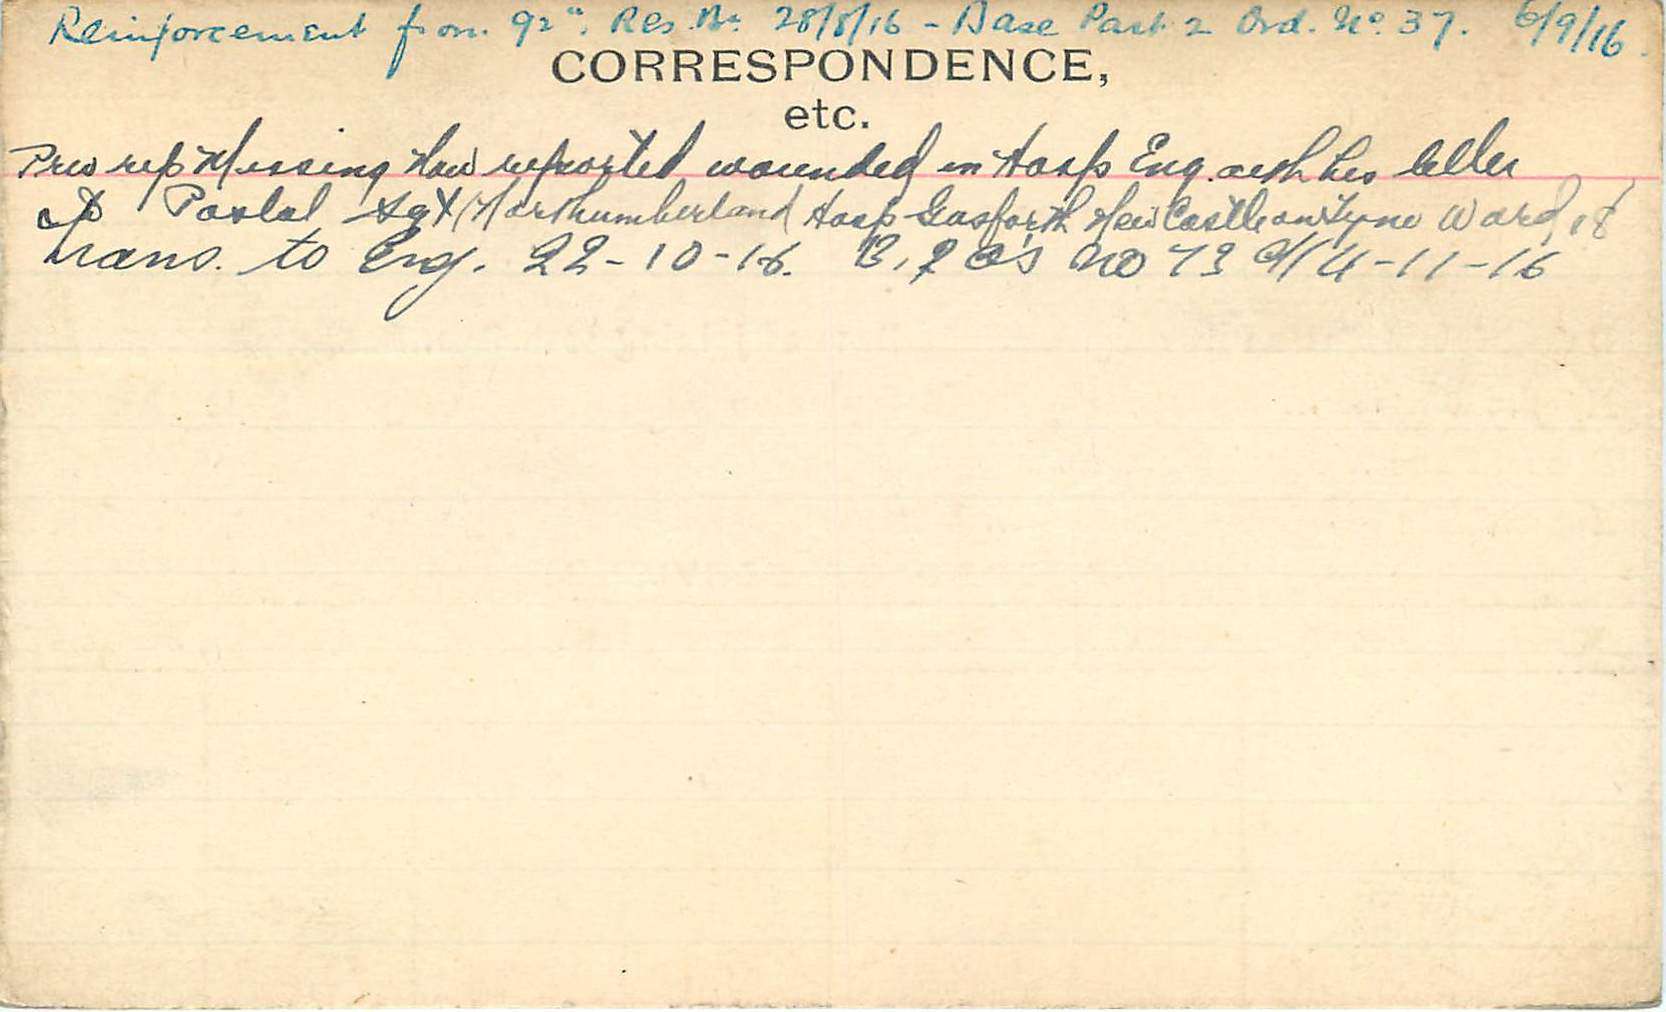 Reinforcement from 92nd. Res. Bn. 28/8/16 - Base Part 2 Ord. No. 37. 6/9/16.
CORRESPONDENCE,
etc.
Prev rep Missing Now reported wounded in Hosp Eng. auth his letter
to Postal Sgt Northumberland Hosp Gosforth New Castle on Tyne Ward 18
trans. to Eng. 22-10-16. B, 2 O's No 73 d/ 4-11-16